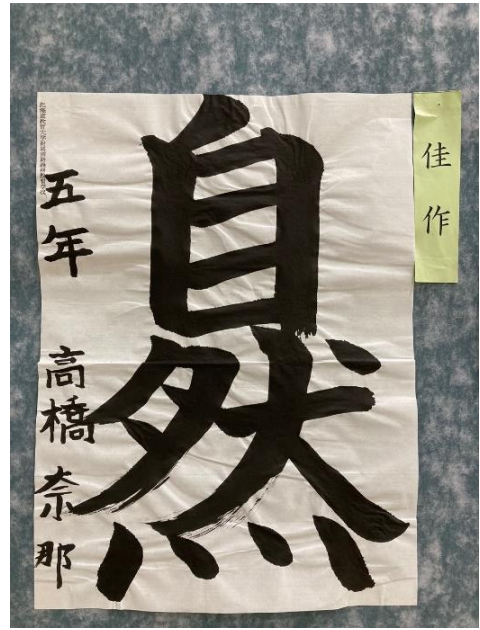 佳作
自然
五年 高橋奈那